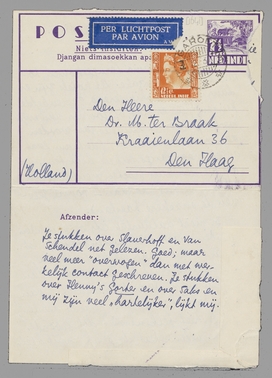 PER LUCHTPOST
PAR AVION
POS
Niets insluiten!
Djangan dimasoekkan apa
NED. INDIE
Den Heere
Dr. M. ter Braak
Kraaienlaan 36
Den Haag
(Holland)
Afzender:
Je stukken over Slauerhoff en van
Schendel net gelezen. Goed; maar
veel meer "overwogen" dan met wer-
kelijk contact geschreven. Je stukken
over Henny's Gorter en over Saks en
mij zijn veel "hartelijker", lijkt mij.